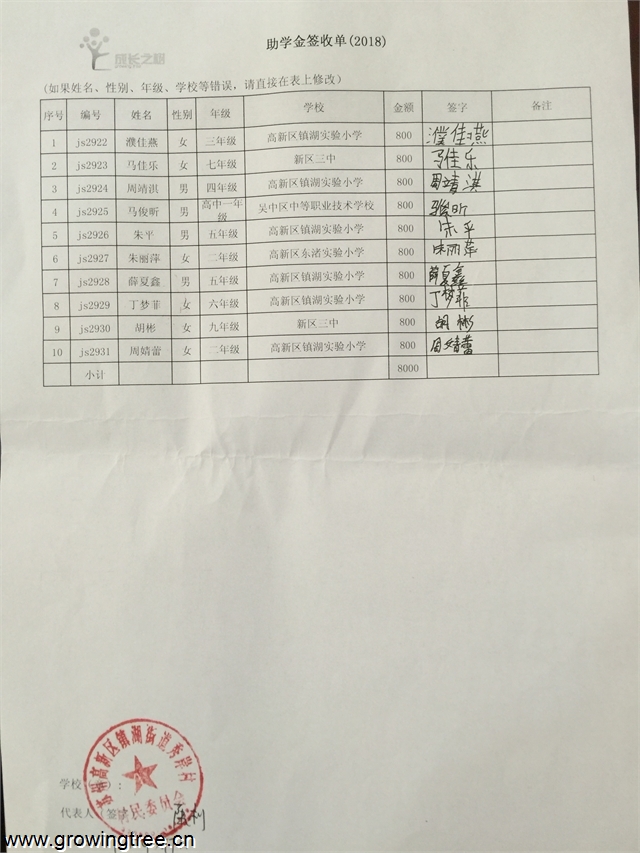 成长之树
助学金签收单(2018)
(如果姓名、性别、年级、学校等错误，请直接在表上修改)
序号 编号 姓名 性别 年级 学校 金额 签字 备注
1 js2922 濮佳燕 女 三年级 高新区镇湖实验小学 800 濮佳燕
2 js2923 马佳乐 女 七年级 新区三中 800 马佳乐
3 js2924 周靖淇 男 四年级 高新区镇湖实验小学 800 周靖淇
4 js2925 马俊昕 男 高中一年级 吴中区中等职业技术学校 800
5 js2926 朱平 男 五年级 高新区镇湖实验小学 800 朱平
6 js2927 朱丽萍 女 二年级 高新区东渚实验小学 800 朱丽萍
7 js2928 薛夏鑫 男 五年级 高新区镇湖实验小学 800 薛夏鑫
8 js2929 丁梦菲 女 六年级 高新区镇湖实验小学 800 丁梦菲
9 js2930 胡彬 女 九年级 新区三中 800 胡彬
10 js2931 周婧蕾 女 二年级 高新区镇湖实验小学 800 周婧蕾
小计 8000
苏州高新区镇湖街道秀岸村
村民委员会
学校
代表人(签
www.growingtree.cn